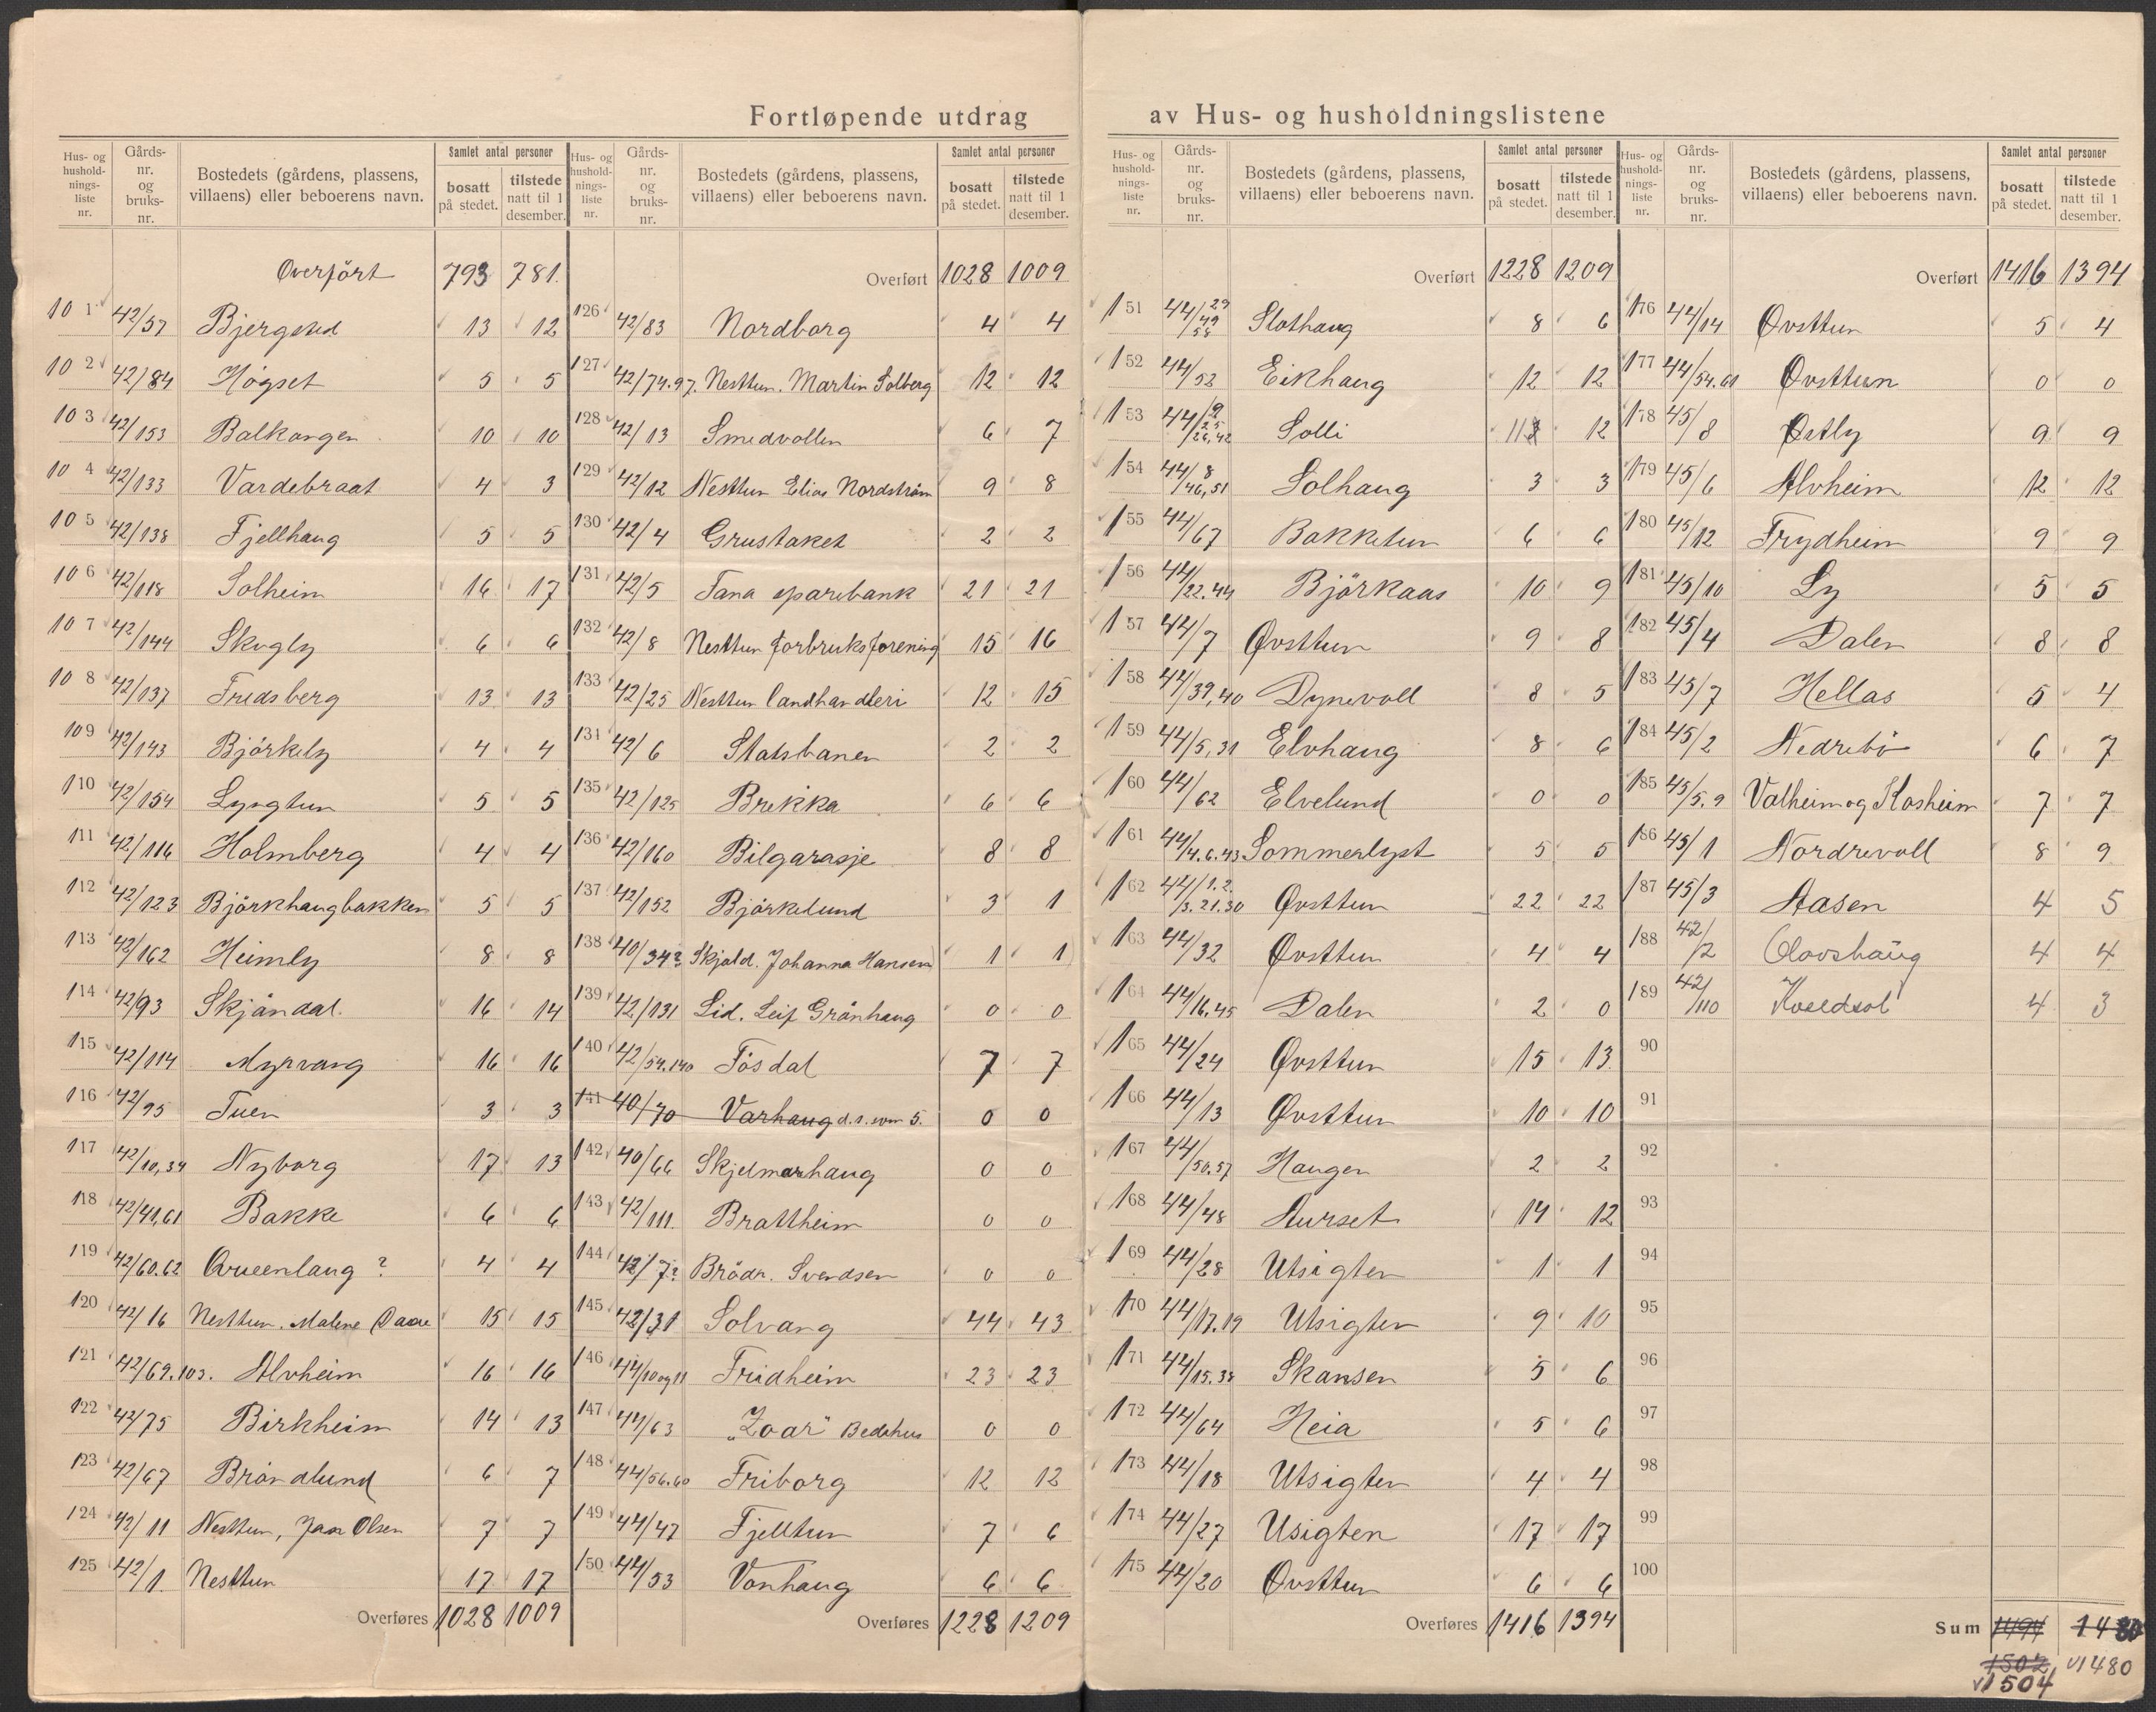 Fortløpende utdrag av Hus- og husholdningslistene
Hus- og hushold-nings-liste nr. Gårds-nr. og bruks-nr. Bostedets (gårdens, plassens, villaens) eller beboerens navn. Samlet antal personer bosatt på stedet. tilstede natt til 1 desember.
Overført 793 781
101 42/57 Bjergsted 13 12
102 42/84 Högset 5 5
103 42/153 Balkongen 10 10
104 42/133 Vardebraat 4 3
105 42/138 Fjellhaug 5 5
106 42/118 Solheim 16 17
107 42/144 Skogly 6 6
108 42/137 Fredsberg 13 13
109 42/143 Björkely 4 4
110 42/154 Lyngtun 5 5
111 42/116 Holmberg 4 4
112 42/123 Björkhaugbakken 5 5
113 42/162 Heimly 8 8
114 42/93 Skjöndal. 16 14
115 42/114 Myrvang 16 16
116 42/95 Tuen 3 3
117 42/10,34 Nyborg 17 13
118 42/41,61 Bakke 6 6
119 42/60.62 Queenlaug ? 4 4
120 42/16 Nesttun. Malene Daae 15 15
121 42/69.103. Alvheim 16 16
122 42/75 Birkheim 14 13
123 42/67 Bröndlund 6 7
124 42/11 Nesttun, Jan Olsen 7 7
125 42/1. Nesttun 17 17
Overføres 1028 1009
Hus- og hushold-nings-liste nr. Gårds-nr. og bruks-nr. Bostedets (gårdens, plassens, villaens) eller beboerens navn. Samlet antal personer bosatt på stedet. tilstede natt til 1 desember.
Overført 1028 1009
126 42/83 Nordborg 4 4
127 42/74.97. Nesttun. Martin Solberg 12 12
128 42/13 Smedvollen 6 7
129 42/12 Nesttun Elias Nordström 9 8
130 42/4 Grustaket 2 2
131 42/5 Fana sparebank 21 21
132 42/8 Nesttun forbruksforening 15 16
133 42/25 Nesttun landhandleri 12 15
134 42/6 Statsbanen 2 2
135 42/125 Brekka 6 6
136 42/160 Bilgarasje 8 8
137 42/152 Björkelund 3 1
138 40/34? Skjold. Johanna Hansen 1 1
139 42/131 Lid. Leif Grönhaug 0 0
140 42/54.140 Tösdal 7 7
141 40/70 Varhaug d.s. som 5. 0 0
142 40/66 Skjelmarhaug 0 0
143 42/111. Brattheim 0 0
144 42/7? Brödr. Svendsen 0 0
145 42/31 Solvang 44 43
146 44/10 og 11 Fridheim 23 23
147 44/63 „Zoar" Bedehus 0 0
148 44/56.60 Friborg 12 12
149 44/47 Fjelltun 7 6
150 44/53 Vonhaug 6 6
Overføres 1228 1209
Hus- og hushold-nings-liste nr. Gårds-nr. og bruks-nr. Bostedets (gårdens, plassens, villaens) eller beboerens navn. Samlet antal personer bosatt på stedet. tilstede natt til 1 desember.
Overført 1228 1209
151 44/29 /49 /58 Slothaug 8 6
152 44/52 Eikhaug 12 12
153 44/9 /25 /26,42 Solli 12
154 44/8 /46,51 Solhaug 3 3
155 44/67 Bakketun 6 6
156 44/22.44 Björkaas 10 9
157 44/7 Øvsttun 9 8
158 44/39,40 Dynevoll 8 5
159 44/5,31 Elvhaug 8 6
160 44/62 Elvelund 0 0
161 44/4.6.43 Sommerlyst 5 5
162 44/1.2. /3.21.30 Øvsttun 22 22
163 44/32 Øvsttun 4 4
164 44/16,45 Dalen 2 0
165 44/24 Øvsttun 15 13
166 44/13 Øvsttun 10 10
167 44/50.57 Haugen 2 2
168 44/48 Aurset 14 12
169 44/28 Utsigten 1 1
170 44/17.19 Utsigten 9 10
171 44/15.38 Skansen 5 6
172 44/64 Heia 5 6
173 44/18 Utsigten 4 4
174 44/27 Usigten 17 17
175 44/20 Øvsttun 6 6
Overføres 1416 1394
Hus- og hushold-nings-liste nr. Gårds-nr. og bruks-nr. Bostedets (gårdens, plassens, villaens) eller beboerens navn. Samlet antal personer bosatt på stedet. tilstede natt til 1 desember.
Overført 1416 1394
176 44/14 Øvsttun 5 4
177 44/54.61 Øvsttun 0 0
178 45/8 Østly 9 9
179 45/6 Alvheim 12 12
180 45/12 Frydheim 9 9
181 45/10 Ly 5 5
182 45/4 Dalen 8 8
183 45/7 Hellas 5 4
184 45/2 Nedrebö 6 7
185 45/5.9 Valheim og Mosheim 7 7
186 45/1 Nordrevoll 8 9
187 45/3 Aasen 4 5
188 42/2 Olavshaug 4 4
189 42/110 Kveldsol 4 3
90
91
92
93
94
95
96
97
98
99
100
Sum 1494 1480
1502 1480
1504